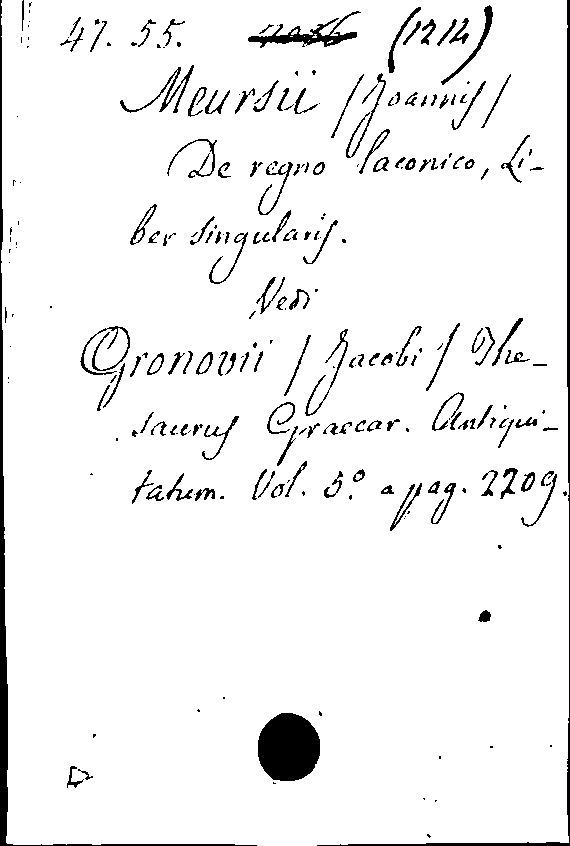 47. 55. (1212)
Meursii /Joannis/
De regno laconico, Li-
ber singularis.
Vedi
Gronovii /Jacobi/ The-
saurus Graecar. Antiqui-
tatum. Vol. 5.º a pag. 2209.